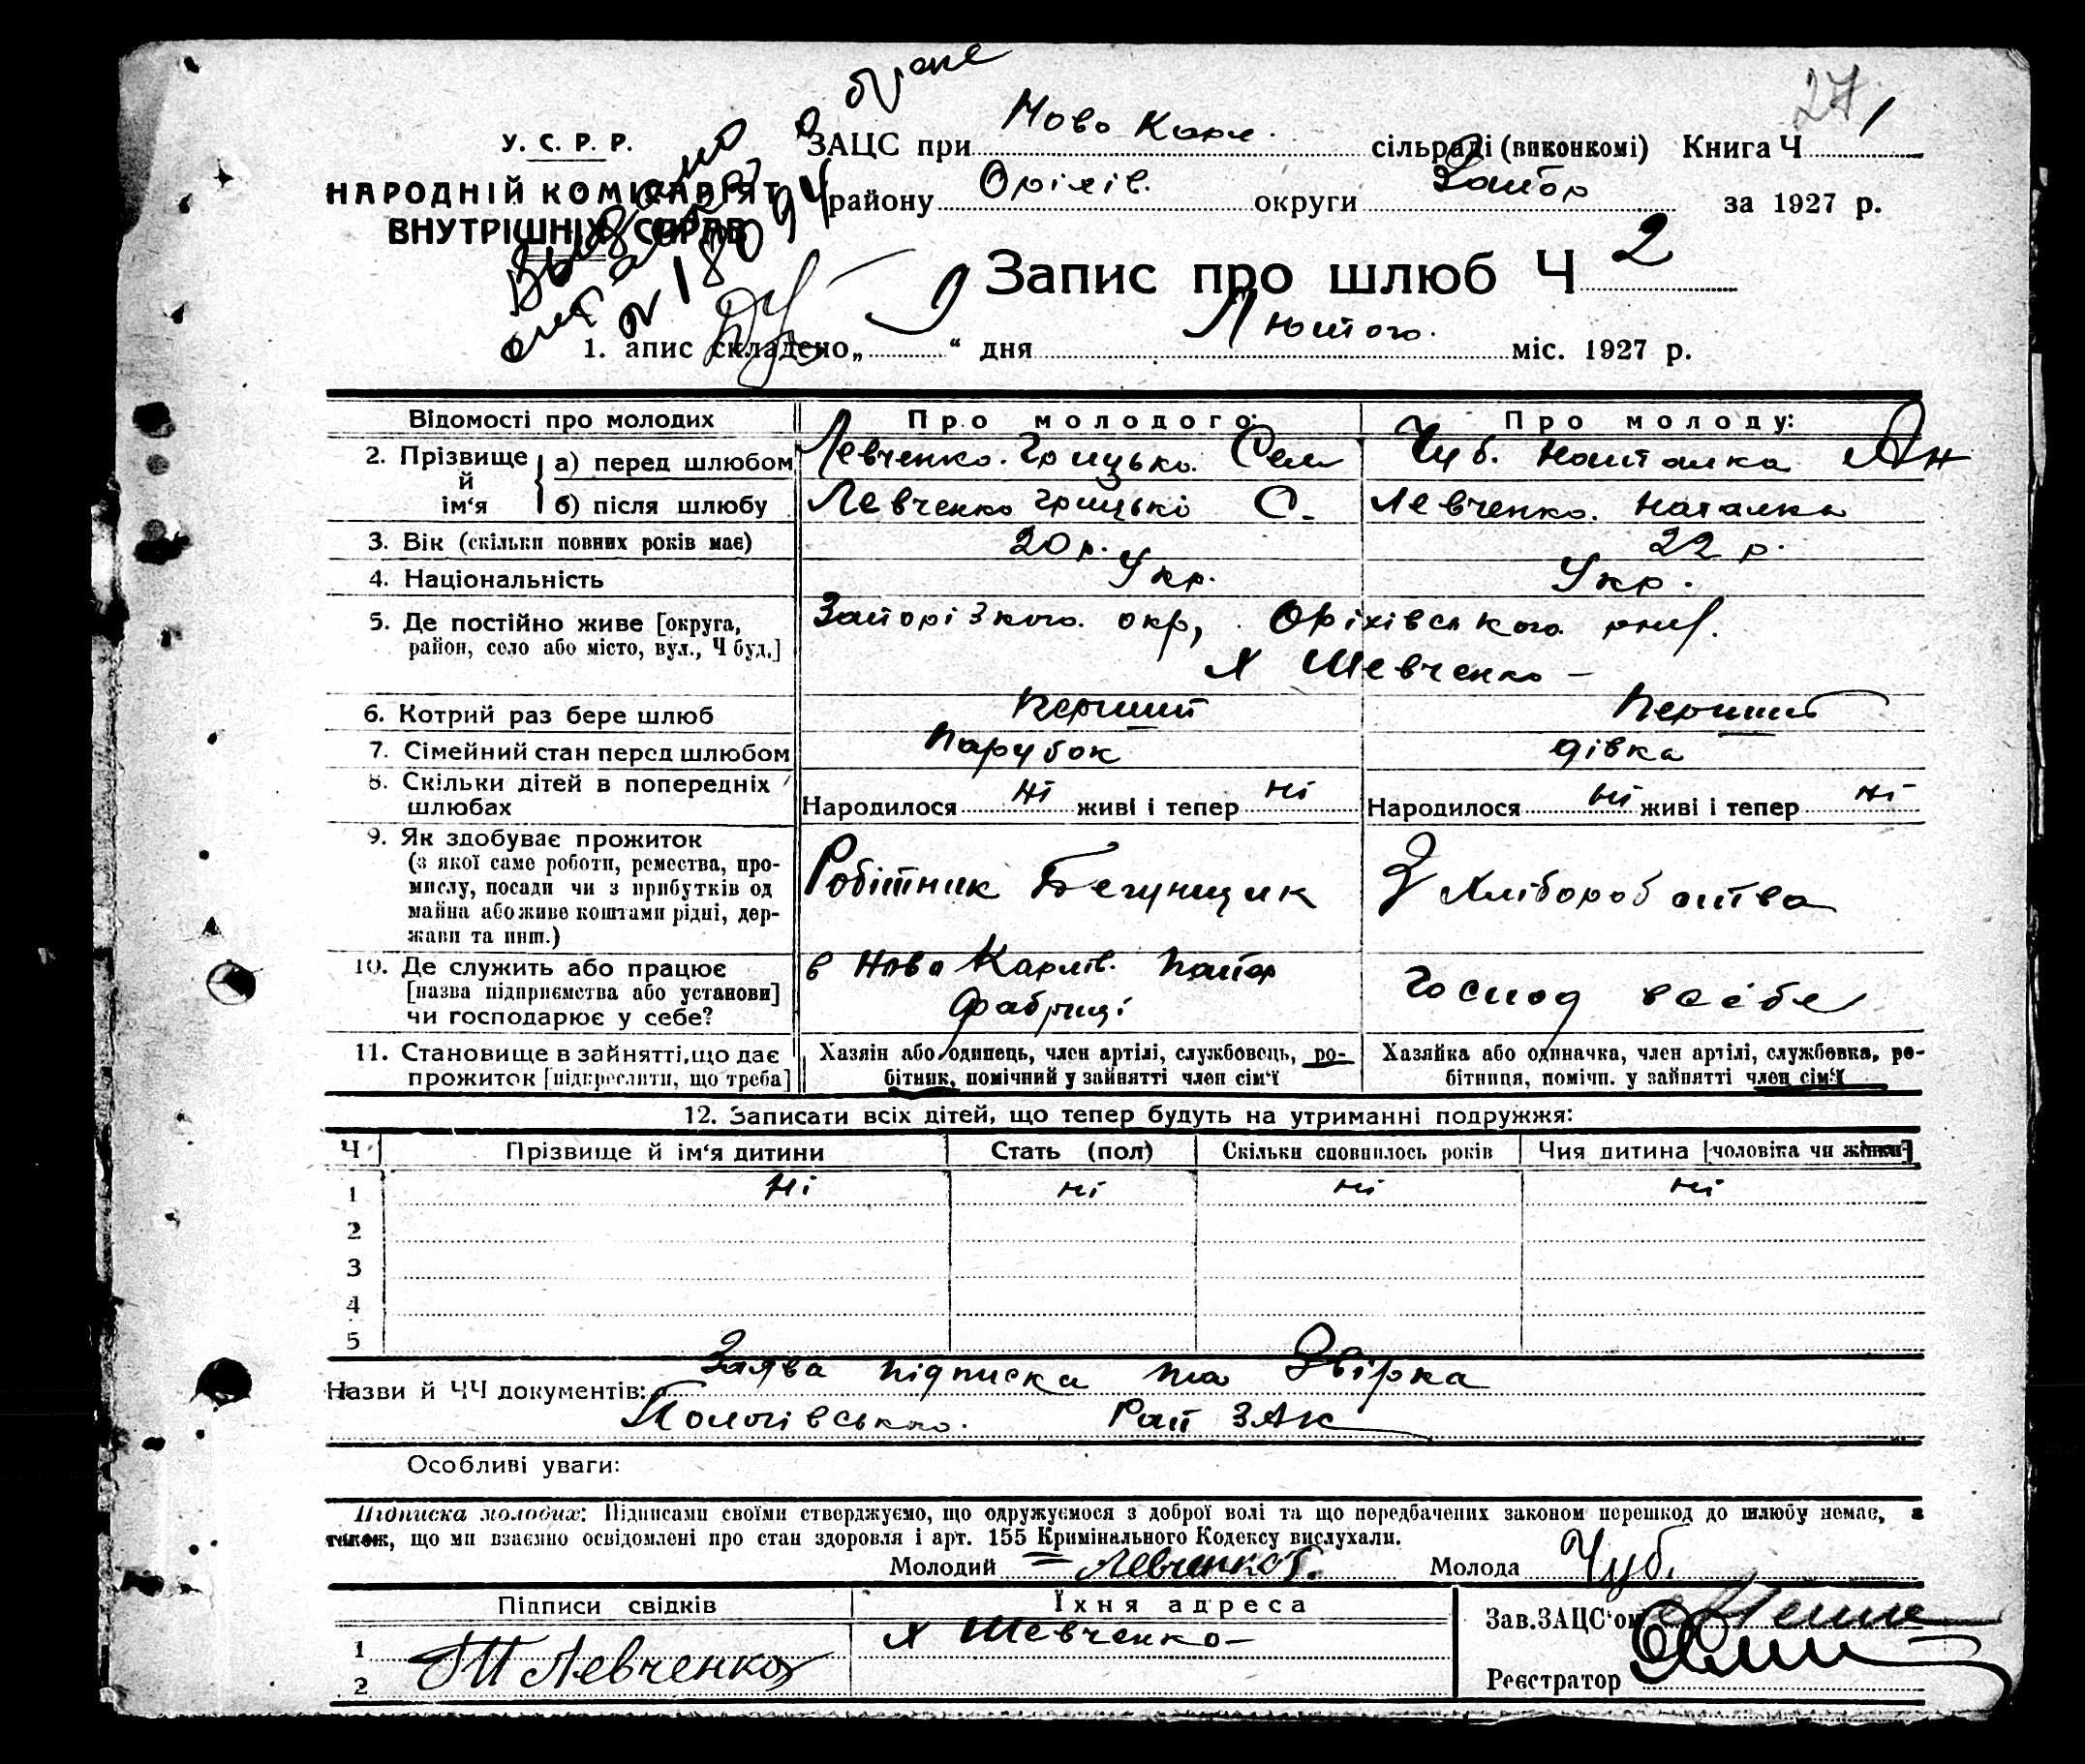 27
У. С. Р. Р.
НАРОДНІЙ КОМІСАРІЯТ
ВНУТРІШНІХ СПРАВ
Выдано о браке
№ 18094
ЗАЦС при Ново Карл. сільраді (виконкомі) Книга Ч 1
району Оріхів. округи Запор за 1927 р.
Запис про шлюб Ч 2
1. апис складено „ 9 “ дня Лютого. міс. 1927 р.
Відомості про молодих Про молодого: Про молоду:
2. Прізвище й ім‘я а) перед шлюбом Левченко. Грицько. Сем Чуб. Наталка Ян
б) після шлюбу Левченко Грицько С. Левченко. Наталка
3. Вік (скільки повних років має) 20 р. 22 р.
4. Національність Укр. Укр.
5. Де постійно живе [округа, район, село або місто, вул., Ч буд.] Запорізького окр, Оріхівського
х Шевченко –
6. Котрий раз бере шлюб Перший Перший
7. Сімейний стан перед шлюбом Парубок дівка
8. Скільки дітей в попередніх шлюбах Народилося ні живі і тепер ні Народилося ні живі і тепер ні
9. Як здобуває прожиток
(з якої саме роботи, ремества, про-
мислу, посади чи з прибутків од
майна або живе коштами рідні, дер-
жави та инш.) Робітник Бегунщик З Хліборобства
10. Де служить або працює
[назва підприємства або установи]
чи господарює у себе? в Ново Карлів. Папер Фабриці Господ в себе
11. Становище в зайнятті, що дає
прожиток [підкреслити, що треба] Хазяїн або одинець, член артілі, службовець, ро-
бітник, помічний у зайнятті член сім‘ї Хазяйка або одиначка, член артілі, службовка, ро-
бітниця, помічн. у зайнятті член сім‘ї
12. Записати всіх дітей, що тепер будуть на утриманні подружжя:
Ч Прізвище й ім‘я дитини Стать (пол) Скільки сповнилось років Чия дитина [чоловіка чи жінки]
1 Ні ні ні ні
2
3
4
5
Назви й ЧЧ документів: Заява підписка та Звірка
Пологівського. Рай ЗАК
Особливі уваги:
Підписка молодих: Підписами своїми стверджуємо, що одружуємося з доброї волі та що передбачених законом перешкод до шлюбу немає, а
також, що ми взаємно освідомлені про стан здоровля і арт. 155 Кримінального Кодексу вислухали.
Молодий Левченко Г. Молода Чуб.
Підписи свідків Їхня адреса Зав.ЗАЦС‘ом
1 х Шевченко –
2 Левченко
Реєстратор